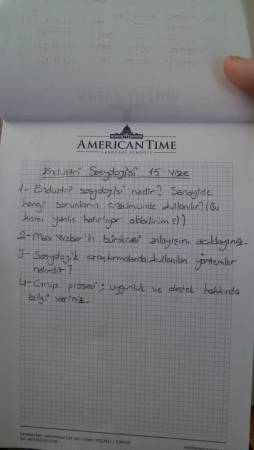 AMERICANTIME
LANGUAGE SCHOOLS
Endüstri Sosyolojisi 15 Vize
1- Endüstri sosyolojisi nedir? Sanayide
hangi sorunların çözümünde kullanılır? (Bu
kısmı yanlış hatırlıyor olabilirim :))
2- Max Weber'in bürokrasi anlayışını açıklayınız.
3- Sosyolojik araştırmalarda kullanılan yöntemler
nelerdir?
4- Grup prosesi; uygunluk ve destek hakkında
bilgi veriniz.